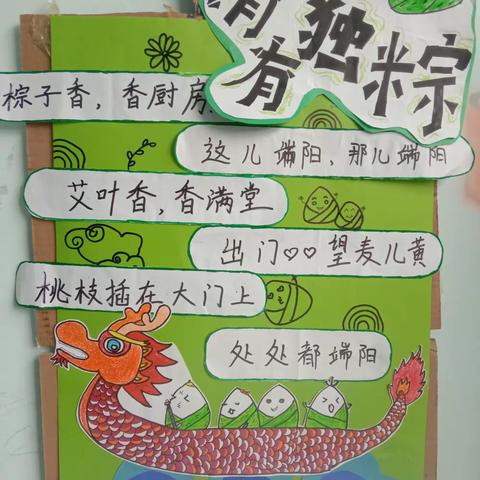 有独粽
棕子香，香厨房
这儿端阳，那儿端阳
艾叶香，香满堂
出门♡♡望麦儿黄
桃枝插在大门上
处处都端阳